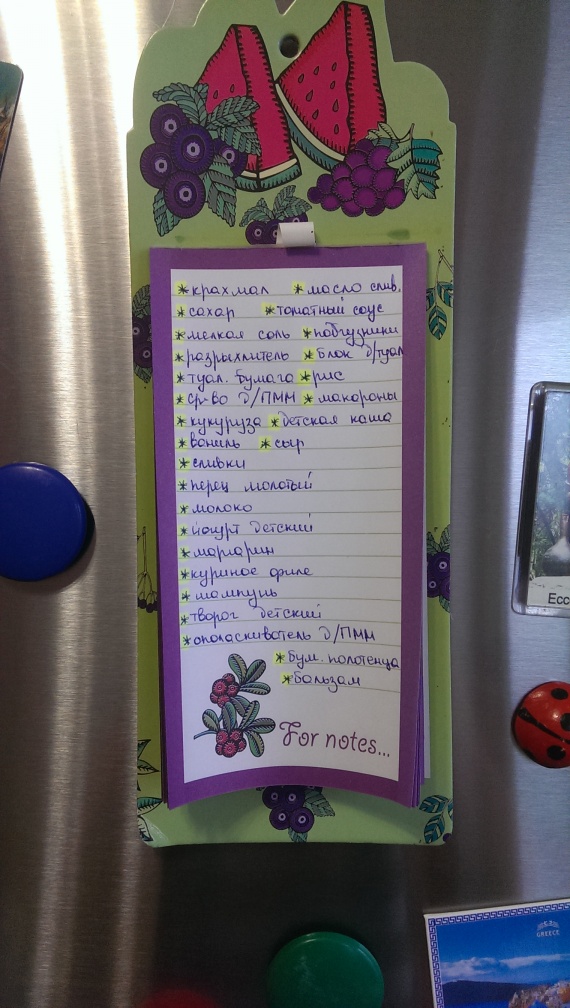 *крахмал *масло слив.
*сахар *томатный соус
*мелкая соль *подгузники
*разрыхлитель *блок д/туал
*туал. бумага *рис
*ср-во д/ПММ *макароны
*кукуруза *детская каша
*ваниль *сыр
*сливки
*перец молотый
*молоко
*йогурт детский
*маргарин
*куриное филе
*шампунь
*творог детский
*ополаскиватель д/ПММ
*бум. полотенца
*бальзам
For notes...
Ecc
GREECE